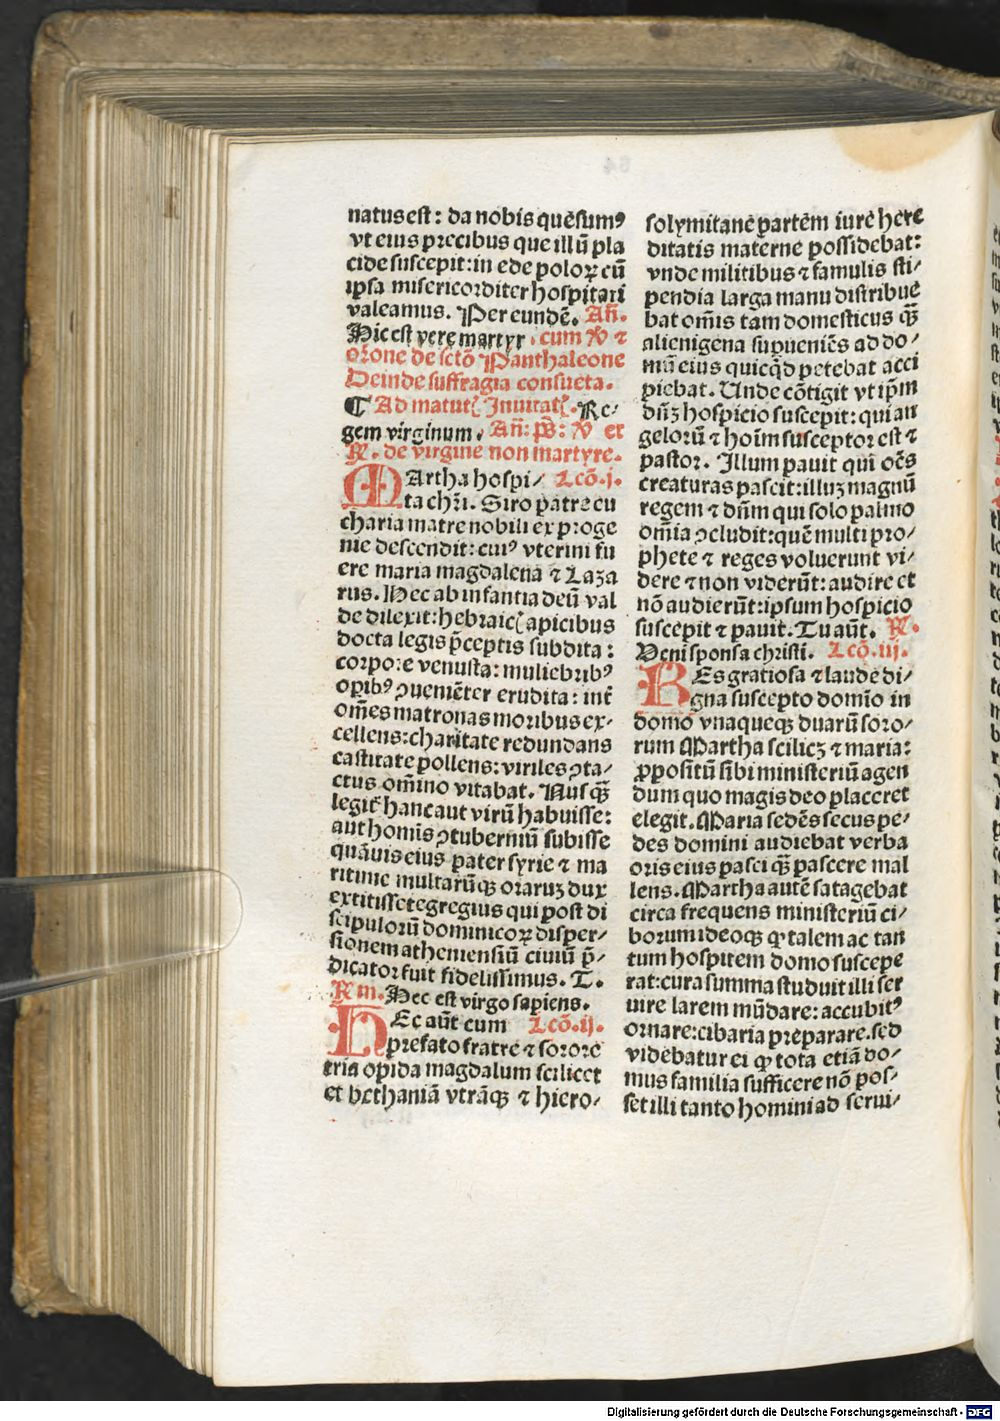 natus est: da nobis quēsumꝰ
vt eius precibus que illū pla
cide suscepit: in ede poloꝝ cū
ipsa misericorditer hospitari
valeamus. Per eundē. Añ.
Hic est vere martyr. cum ꝟ ⁊
orōne de sctō Panthaleone
Deinde suffragia consueta.
¶ Ad matut̄ Inuitat̄. Re⸗
gem virginum. Añ: ps̄: ꝟ et
℟. de virgine non martyre.
MArtha hospi⸗ Lcō.j.
ta chr̄i. Siro patre eu
charia matre nobili ex proge
nie descendit: cuiꝰ vterini fu
ere maria magdalena ⁊ Laza
rus. Hec ab infantia deū val
de dilexit: hebraic̄ apicibus
docta legis p̄ceptis subdita:
corpore venusta: muliebribꝰ
oꝑibꝰ ꝯueniēter erudita: int̄
om̄es matronas moribus ex⸗
cellens: charitate redundans
castitate pollens: viriles ꝯta⸗
ctus om̄ino vitabat. Nusqͣꝫ
legit̄ hanc aut virū habuisse:
aut homīs ꝯtuberniū subisse
quāuis eius pater syrie ⁊ ma
ritime multarūqꝫ oraruꝫ dux
extitisset egregius qui post di
scipulorū dominicoꝝ disper⸗
sionem atheniensiū ciuiū p̄⸗
dicator fuit fidelissimus. T.
℟m. Hec est virgo sapiens.
HEc aūt cum Lcō.ij.
prefato fratre ⁊ sorore
tria opida magdalum scilicet
et bethaniā vtrāqꝫ ⁊ hiero⸗
solymitane partem iure here
ditatis materne possidebat:
vnde militibus ⁊ famulis sti⸗
pendia larga manu distribue
bat om̄is tam domesticus qͣꝫ
alienigena supueniēs ad do⸗
mū eius quicqͥd petebat acci
piebat. Unde cōtigit vt ip̄m
dn̄ꝫ hospicio suscepit: qui an
gelorū ⁊ hoīm susceptor est ⁊
pastor. Illum pauit qui oēs
creaturas pascit: illuꝫ magnū
regem ⁊ dn̄m qui solo palmo
om̄ia ꝯcludit: quē multi pro⸗
phete ⁊ reges voluerunt vi⸗
dere ⁊ non viderūt: audire et
nō audierūt: ipsum hospicio
suscepit ⁊ pauit. Tu aūt. ℟.
Veni sponsa christi. Lcō.iij.
REs gratiosa ⁊ laude di⸗
gna suscepto domīo in
domo vnaqueqꝫ duarū soro⸗
rum Martha scilicꝫ ⁊ maria:
ꝓpositū sibi ministeriū agen
dum quo magis deo placeret
elegit. Maria sedēs secus pe⸗
des domini audiebat verba
oris eius pasci qͣꝫ pascere mal
lens. Martha autē satagebat
circa frequens ministeriū ci⸗
borum ideoqꝫ ꝙ talem ac tan
tum hospitem domo suscepe
rat: cura summa studuit illi ser
uire larem mūdare: accubitꝰ
ornare: cibaria preparare. sed
videbatur ei ꝙ tota etiā do⸗
mus familia sufficere nō pos⸗
set illi tanto homini ad serui⸗
Digitalisierung gefördert durch die Deutsche Forschungsgemeinschaft - DFG